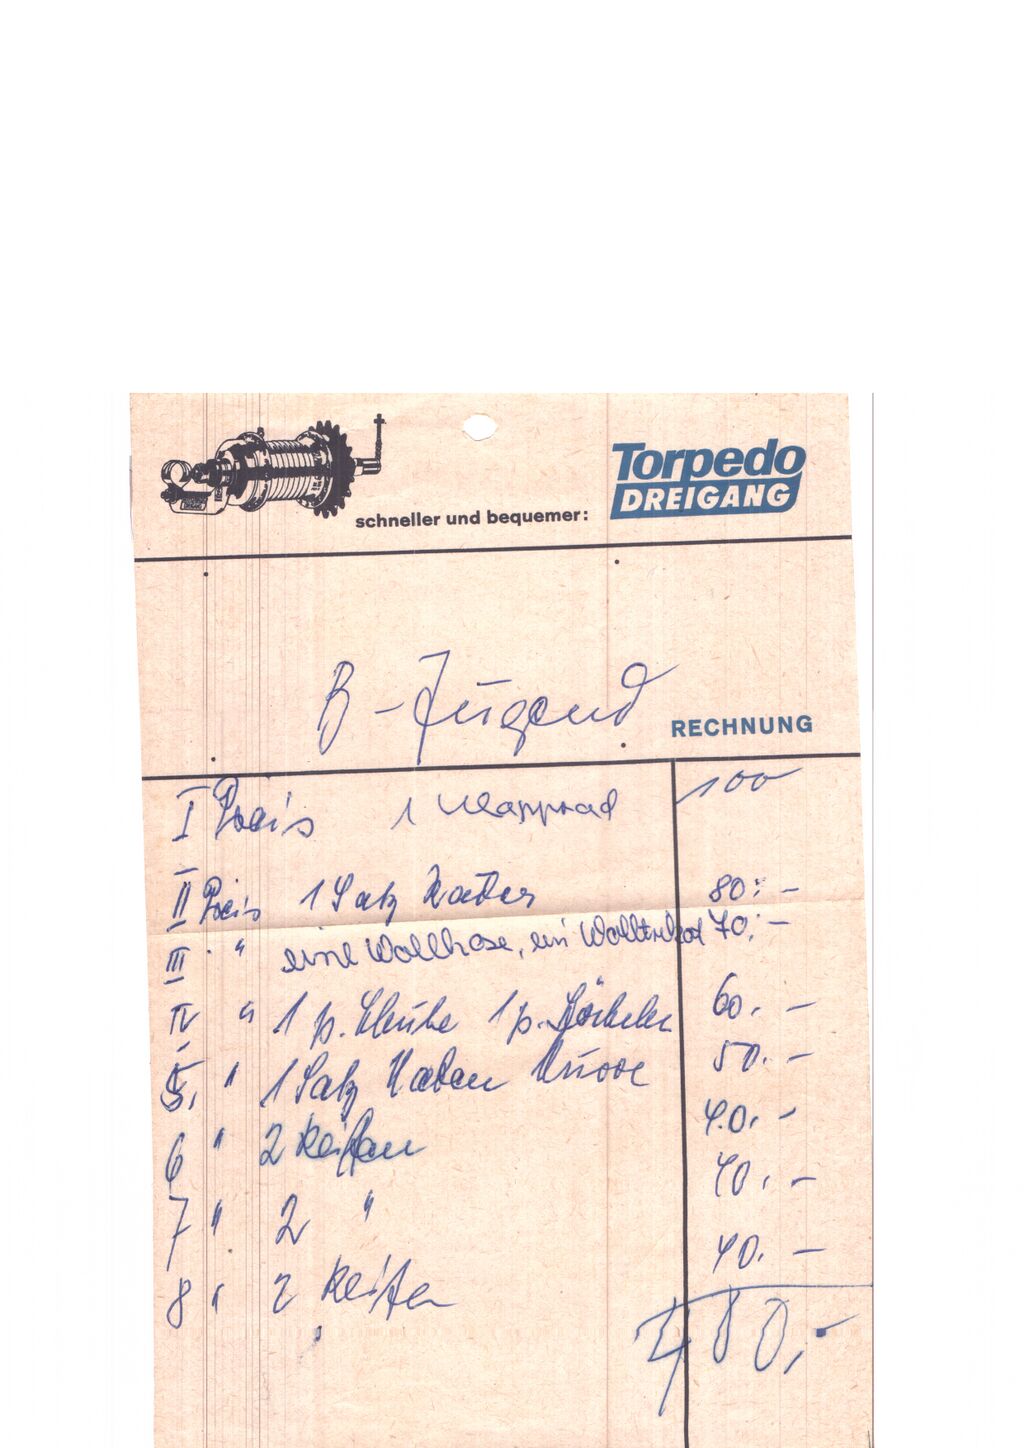 schneller und bequemer:
Torpedo
DREIGANG
B-Jugend
RECHNUNG
I Preis 1 Klapprad 100
II Preis 1 Satz Räder 80.-
III " eine Wollhose, ein Wolltrikot 70.-
IV " 1 p. Schuhe 1 p. 60.-
5. " 1 Satz Naben 50.-
6 " 2 Reifen 40.-
7 " 2 " 40.-
8 " 2 Reifen 40.-
480,-